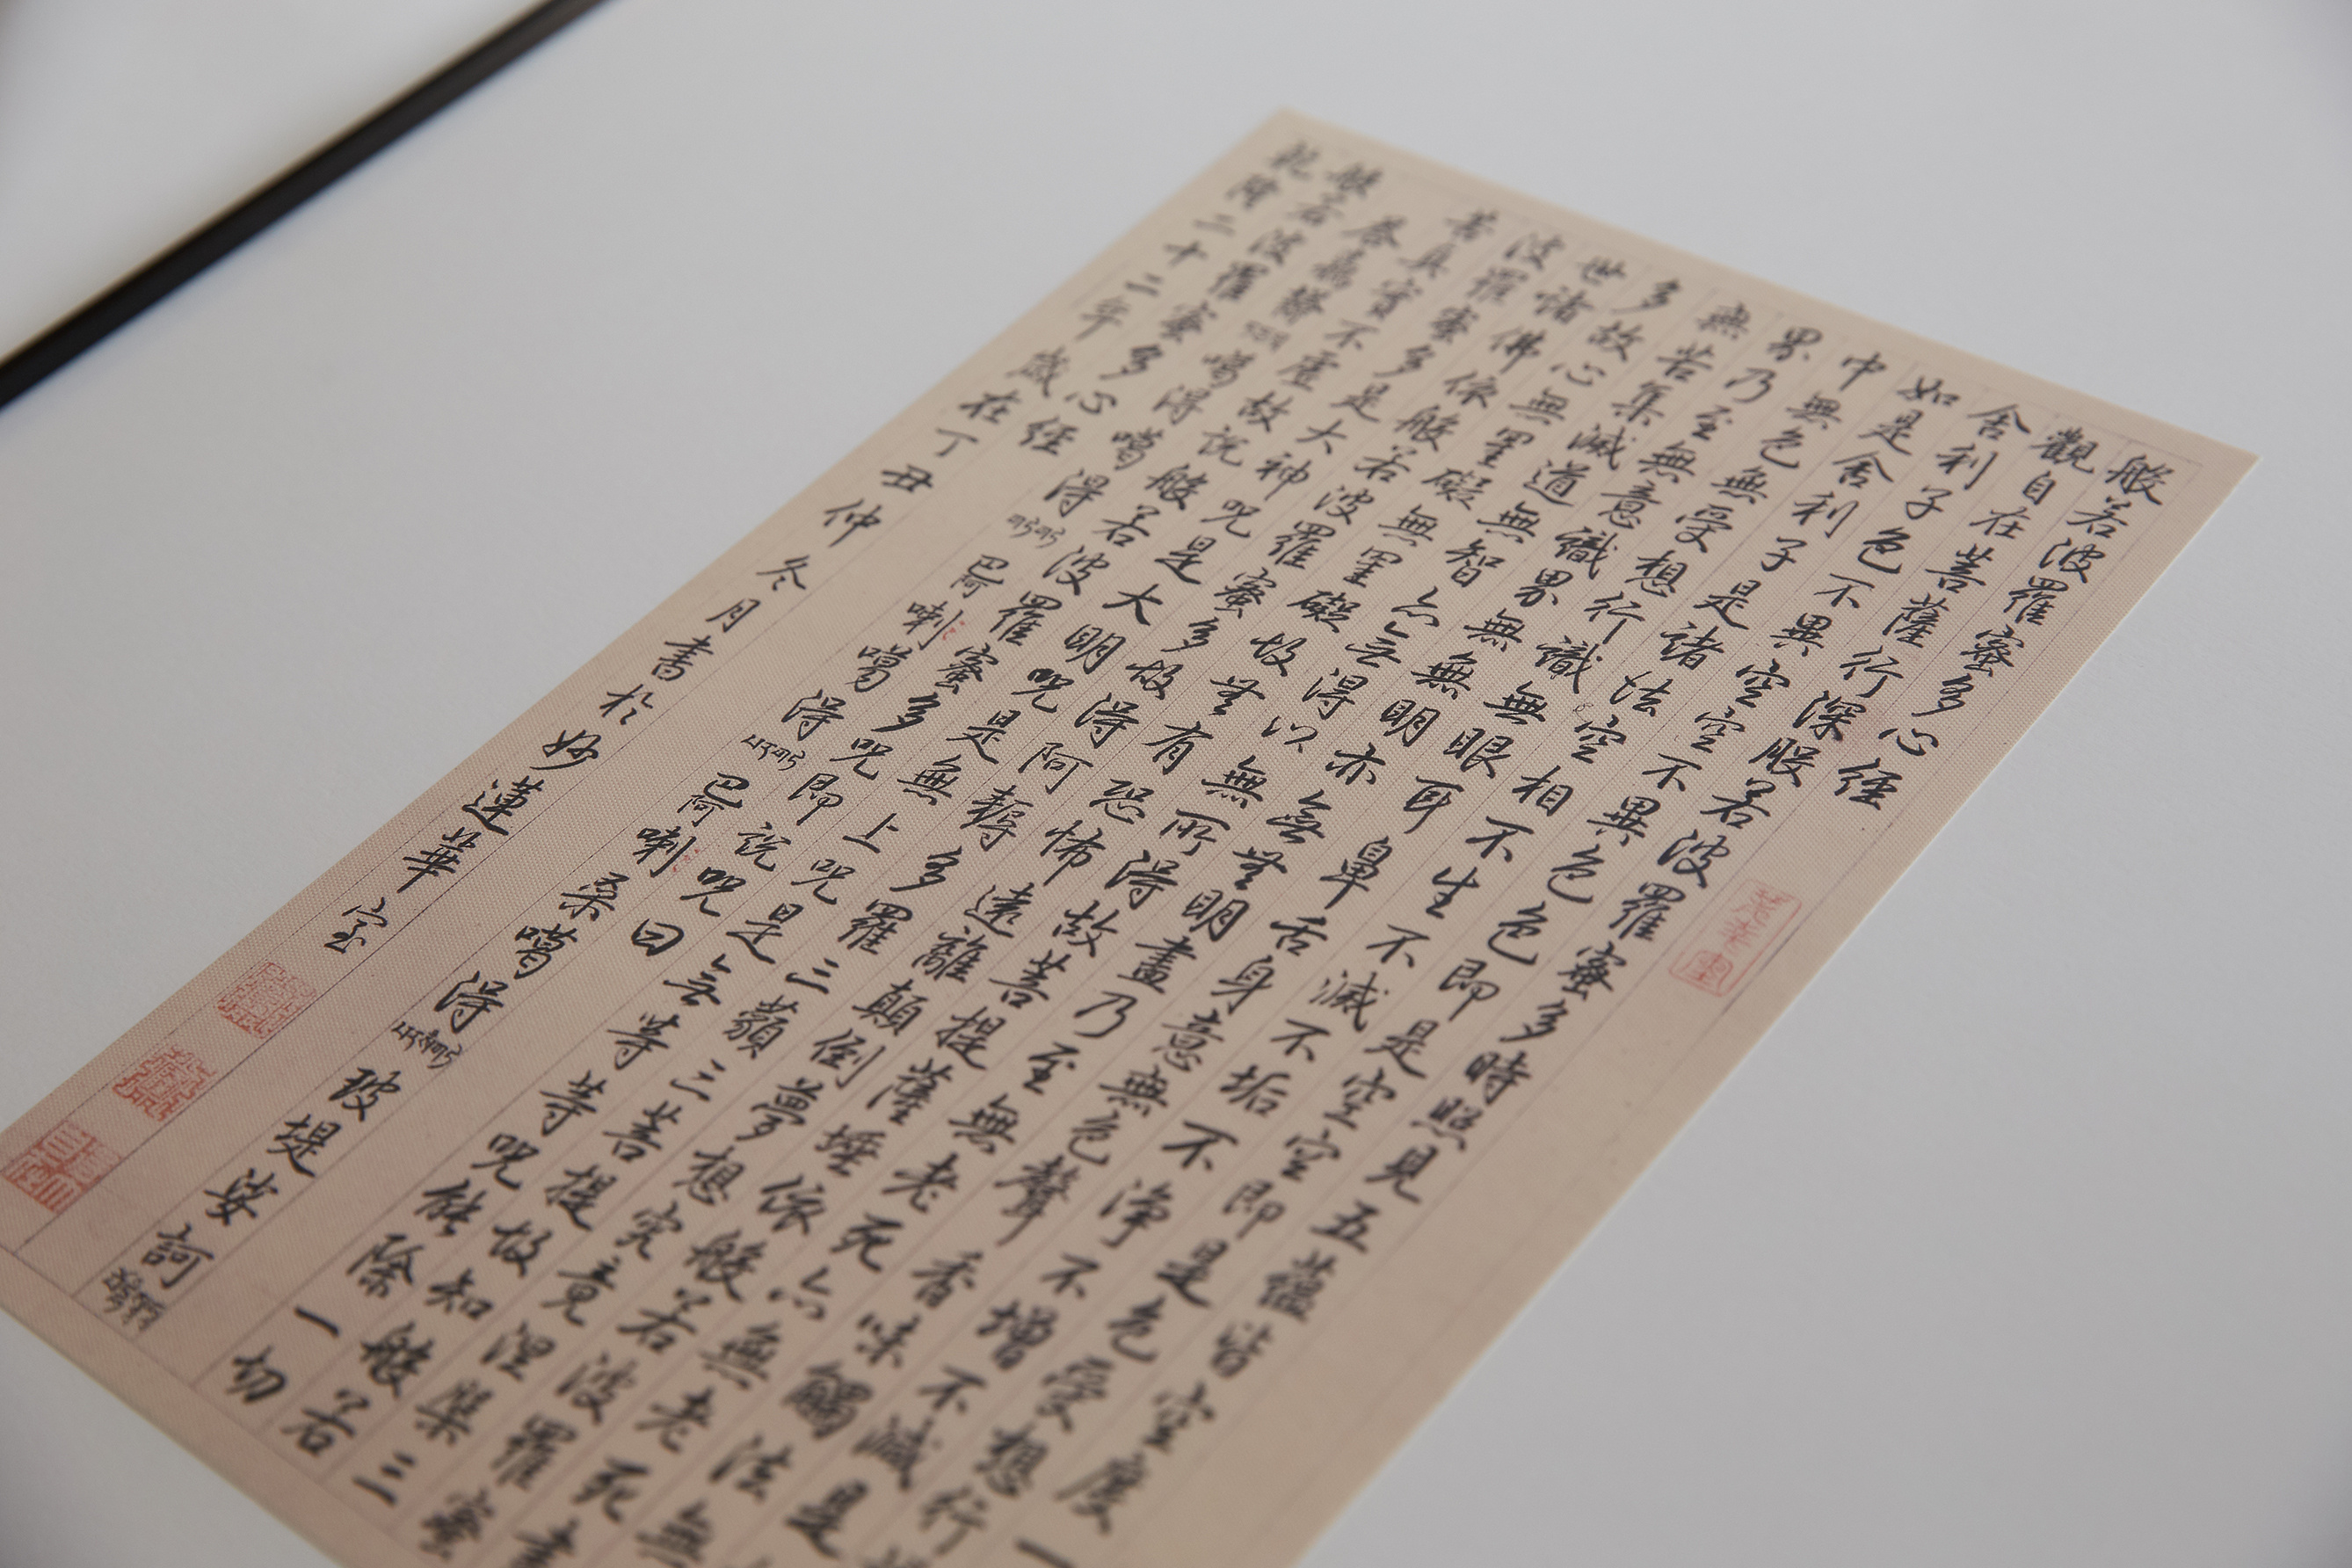 般若波羅蜜多心經
觀自在菩薩行深般若波羅蜜多時照見五蘊皆空度一
舍利子色不異空空不異色色即是空空即是色受想行
如是舍利子是諸法空相不生不滅不垢不淨不增不減是
中無色無受想行識無眼耳鼻舌身意無色聲香味觸法無
界乃至無意識界無無明亦無無明盡乃至無老死亦無老死盡
無苦集滅道無智亦無得以無所得故菩提薩埵依般若波羅蜜
多故心無罣礙無罣礙故無有恐怖遠離顛倒夢想究竟涅槃三
世諸佛依般若波羅蜜多故得阿耨多羅三藐三菩提故知般若
波羅蜜多是大神呪是大明呪是無上呪是無等等呪能除一切
苦真實不虛故說般若波羅蜜多呪即說呪曰
喝得噶得喇噶得喇桑噶得玻堤娑訶
般若波羅蜜多心經
乾隆二十二年歲在丁丑仲冬月書於妙蓮華室